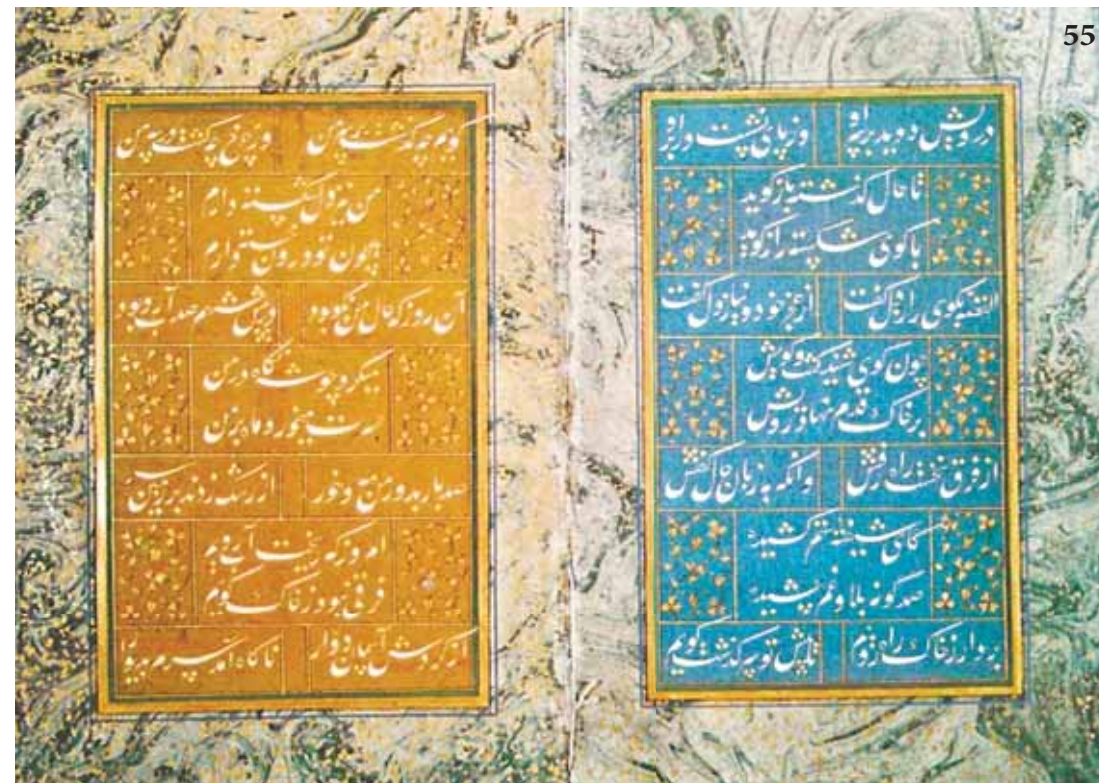 55
درویش دوید بر او وز پای نشست در بر او
تا حال گذشته باز گوید
با گوی شکسته راز گوید
القصه بگوی راز دل گفت از عجز خود و نیاز دل گفت
چون گوی شنید گفت و گویش
بر خاک قدم نهاد رویش
از فرق نخست راه رفتش وانگه به زبان حال گفتش
کای شیفته ستم کشیده
صد گونه بلا و غم چشیده
بردار ز خاک راه رویم تا پیش تو سرگذشت گویم
گویم چه گذشت بر سر من وز چرخ چه گشت بر سر من
من نیز دل شکسته دارم
چون تو درون دارم
آن روز که حال من نکو بود در پیش صد آب رو بود
میکرد چو شب نگاه در من
حسرت میخورد ماه بر من
صد بار بدور من مه و خور از رشک زدند بر زمین سر
امروز که ریخت آب رویم
فرقی نبود ز خاک کویم
از گردش آسمان دوار ناگاه آمد سرم بدیوار